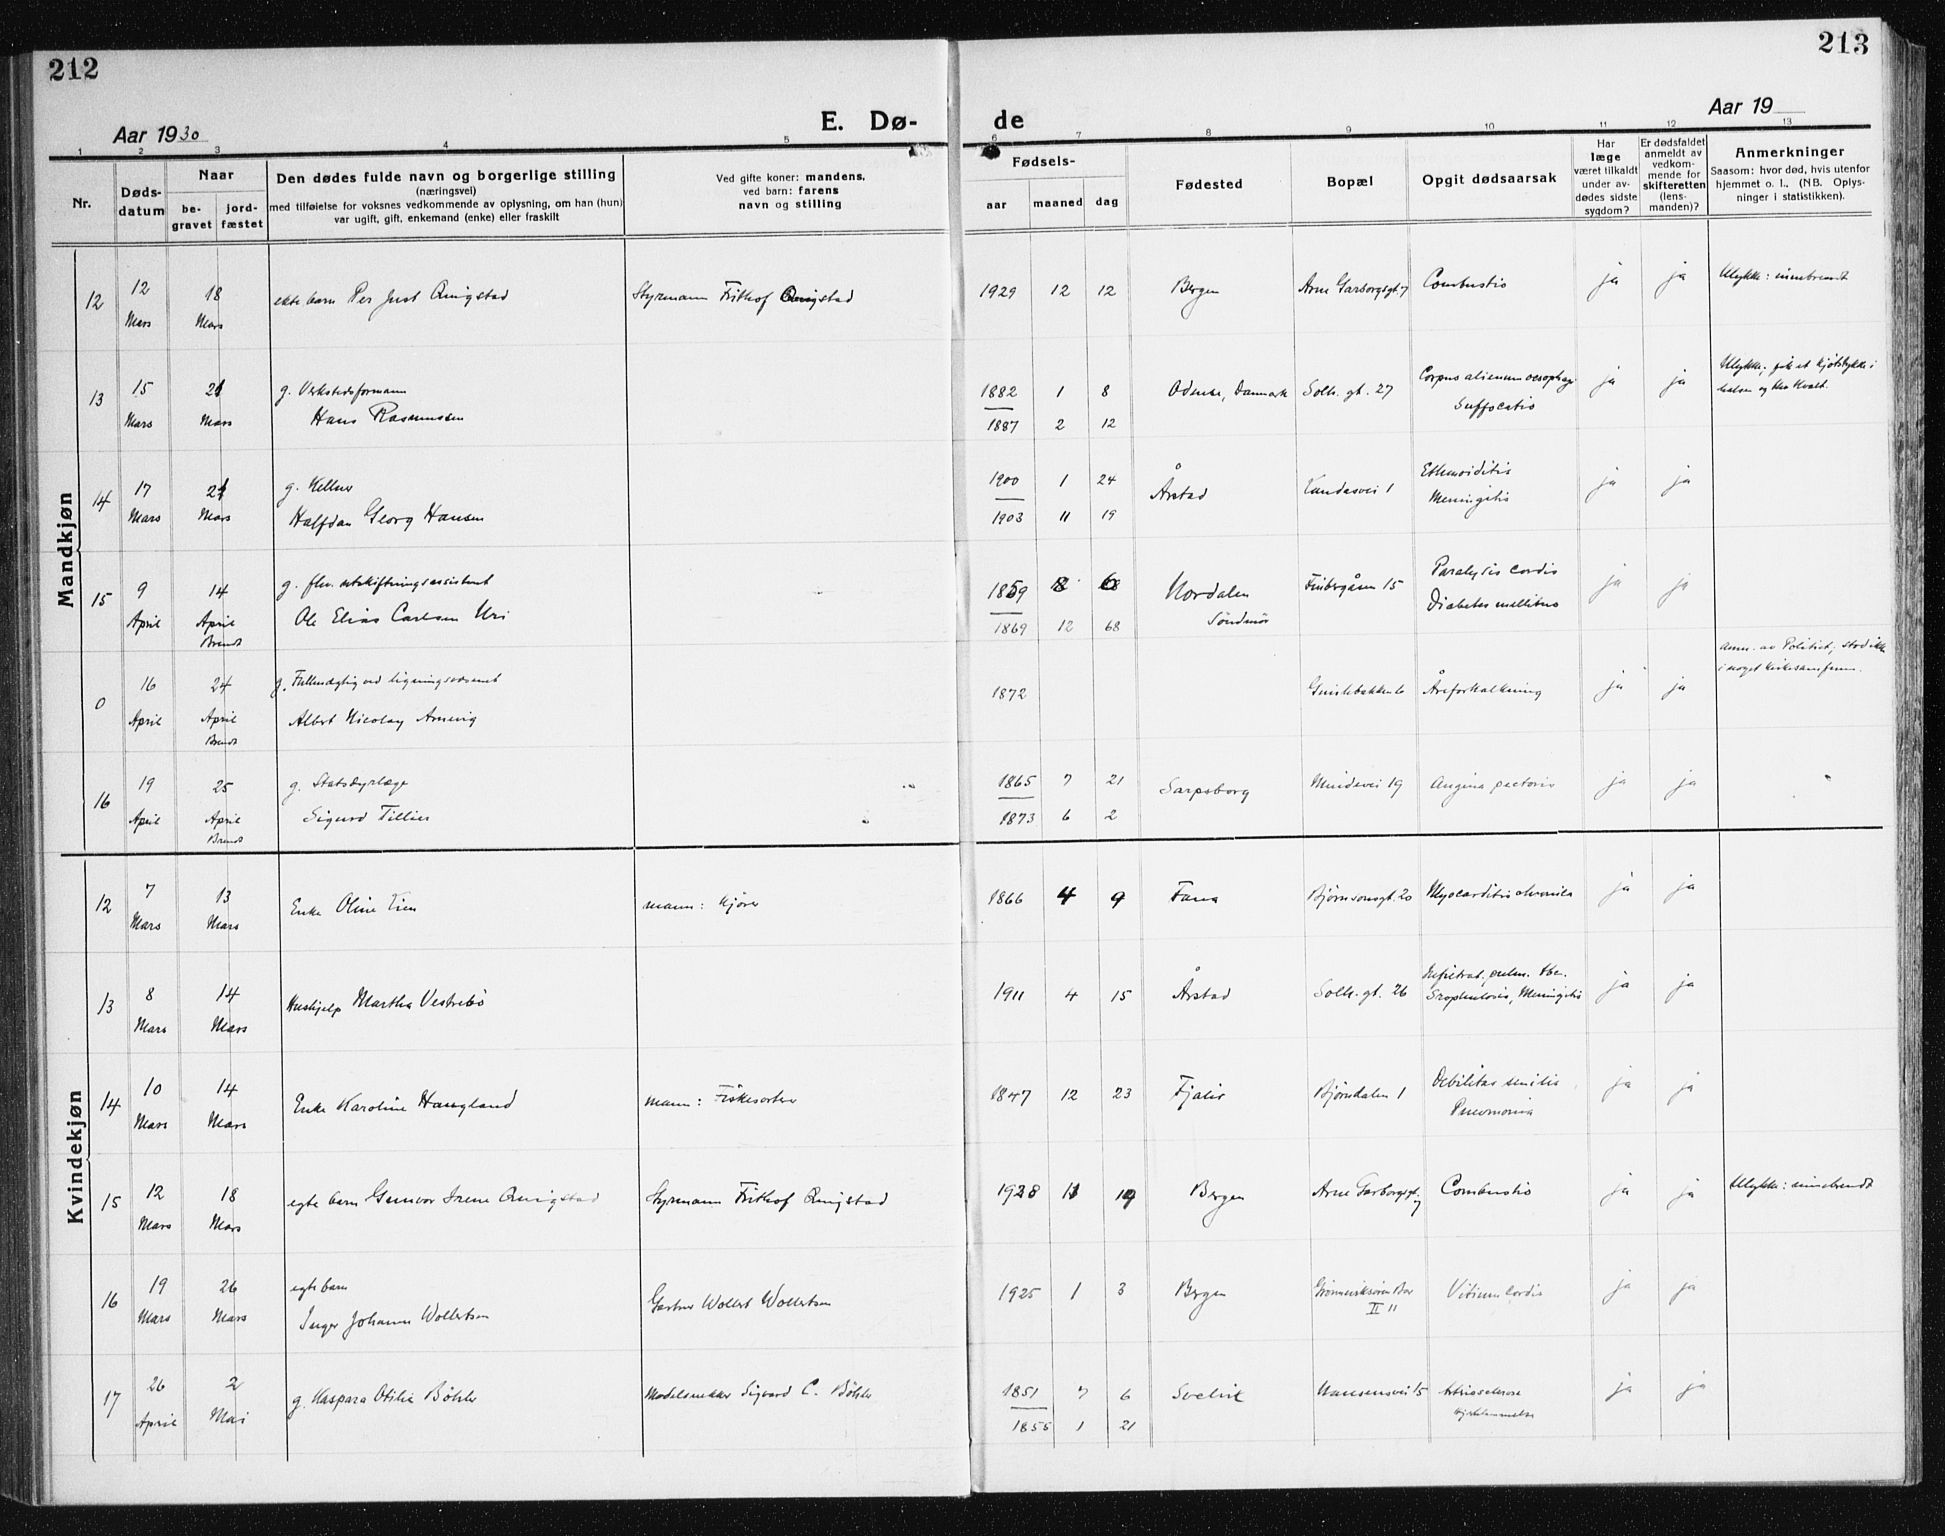 212
213
Aar 1930
E. Dø-
de
Aar 19
1 2 3 4 5 6 7 8 9 10 11 12 13
Nr.
Døds-
datum
Naar
be-
gravet
jord-
fæstet
Den dødes fulde navn og borgerlige stilling
(næringsvei)
med tilføielse for voksnes vedkommende av oplysning, om han (hun)
var ugift, gift, enkemand (enke) eller fraskilt
Ved gifte koner: mandens,
ved barn: farens
navn og stilling
Fødsels-
aar
maaned
dag
Fødested
Bopæl
Opgit dødsaarsak
Har
læge
været tilkaldt
under av-
dødes sidste
sygdom?
Er dødsfaldet
anmeldt av
vedkom-
mende for
skifteretten
(lens-
manden)?
Anmerkninger
Saasom: hvor død, hvis utenfor
hjemmet o. l., (NB. Oplys-
ninger i statistikken).
Mandkjøn
12 12 Mars 18 Mars ekte barn Per Just Qvigstad Styrmann Frithof Qvigstad 1929 12 12 Bergen Arne Garborgsgt. 7 Combustio ja ja Ulykke: innebrendt
13 15 Mars 21 Mars g. Verkstedsformann
Hans Rasmussen
1882 1 8 Odense, Danmark Solh. gt. 27 Corpus alienum oesophagi ja ja Ulykke, fik et kjøtstykke i
halsen og blev kvalt.
1887 2 12 Suffocatio
14 17 Mars 21 Mars g. Kellner
Halfdan Georg Hansen
1900 1 24 Årstad Landåsvei 1 Ethmoiditis ja ja
1903 11 19 Meningitis
15 9 April 14 April Brendt g. fhv. utskiftningsassistent
Ole Elias Carlsen Uri
1859 8 6 Nordalen Finbergåsen 15 Paralysis cordis ja ja
1869 12 68 Søndmør Diabetes mellitus
0 16 April 24 April Brendt g. Fullmægtig ved ligningsvæsenet
Albert Nicolay
1872 Åreforkalkning ja ja Anm. av Politiet, stod ikke
i noget kirkesamfunn.
16 19 April 25 April Brendt g. Statsdyrlæge
Sigurd Tillier
1865 7 21 Sarpsborg Mindevei 19 Angina pectoris ja ja
1873 6 2
Kvindekjøn
12 7 Mars 13 Mars Enke Oline Lien mann: kjører 1866 4 9 Fana Bjørnsonsgt. 20 Myocarditis chronica ja ja
13 8 Mars 14 Mars Hushjelp Martha Vestrebø 1911 4 15 Årstad Solh. gt. 26 Infiltrat. pulm. tbc.
Scrophulosis, Meningitis ja ja
14 10 Mars 14 Mars Enke Karoline Haugland mann: Fiskesorterer 1847 12 23 Fjaler Bjørndalen 1 Debilitas senilis
Pneumonia ja ja
15 12 Mars 18 Mars egte barn Gunvor Irene Qvigstad Styrmann Frithof Qvigstad 1928 11 19 Bergen Arne Garborgsgt. 7 Combustio ja ja Ulykke: innebrendt
16 19 Mars 26 Mars egte barn
Inger Johanne Wollertsen Gartner Wollert Wollertsen 1925 1 3 Bergen II 11 Vitium cordis ja ja
17 26 April 2 Mai g. Kaspara Otilie Bøhler Modelsnekker Sigvard C. Bøhler 1851 7 6 Svelvik Nansensvei 15 Arteriosclerose ja ja
1855 1 21 Hjertelammelse